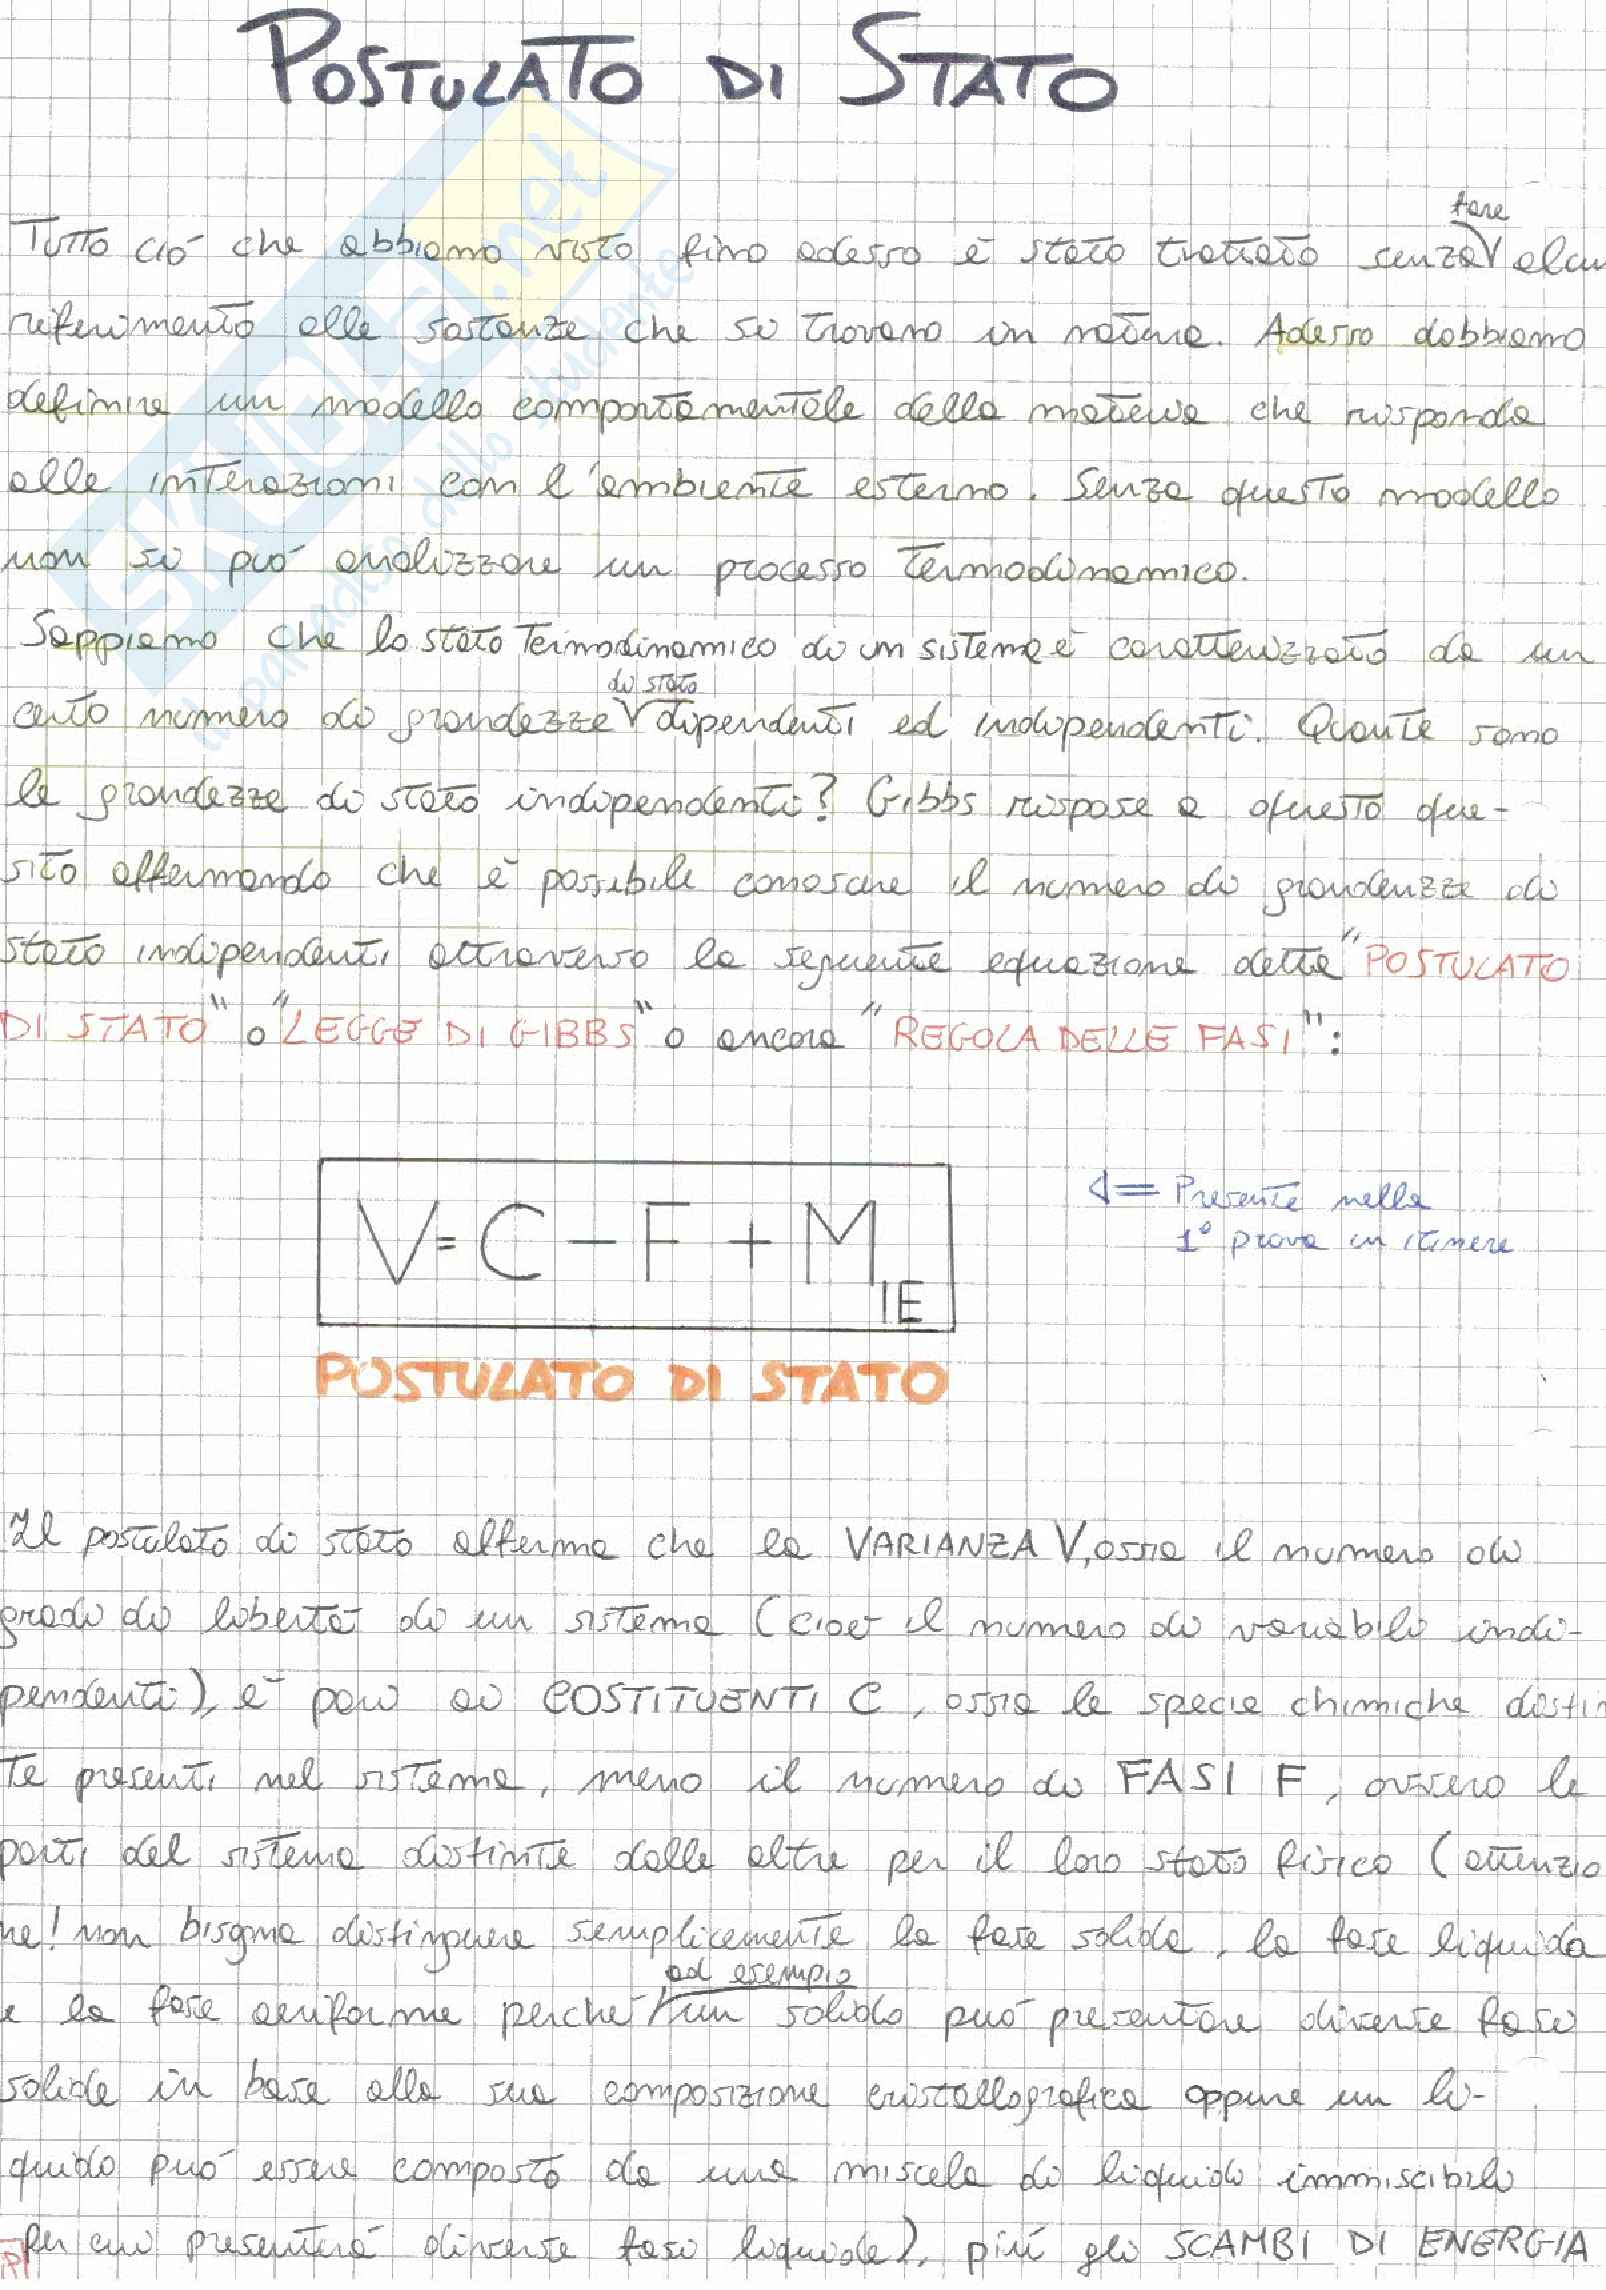 POSTULATO DI STATO
fare
Tutto ciò che abbiamo visto fino adesso è stato trattato senza alcun
riferimento alle sostanze che si trovano in natura. Adesso dobbiamo
definire un modello comportamentale della materia che risponda
alle interazioni con l'ambiente esterno. Senza questo modello
non si può analizzare un processo termodinamico.
Sappiamo che lo stato termodinamico di un sistema è caratterizzato da un
di stato
certo numero di grandezze dipendenti ed indipendenti. Quante sono
le grandezze di stato indipendenti? Gibbs rispose a questo que-
sito affermando che è possibile conoscere il numero di grandezze di
stato indipendenti attraverso la seguente equazione detta "POSTULATO
DI STATO" o "LEGGE DI GIBBS" o ancora "REGOLA DELLE FASI":
V = C - F + M IE
<= Presente nella
1° prova in itinere
POSTULATO DI STATO
Il postulato di stato afferma che la VARIANZA V, ossia il numero di
gradi di libertà di un sistema (cioè il numero di variabili indi-
pendenti), è pari ai COSTITUENTI C, ossia le specie chimiche distin
te presenti nel sistema, meno il numero di FASI F, ovvero le
parti del sistema distinte dalle altre per il loro stato fisico (attenzio
ne! non bisogna distinguere semplicemente la fase solida, la fase liquida
ad esempio
e la fase aeriforme perché un solido può presentare diverse fasi
solide in base alla sua composizione cristallografica oppure un li-
quido può essere composto da una miscela di liquidi immiscibili
per cui presenterà diverse fasi liquide), più gli SCAMBI DI ENERGIA
SKUOLA.net
il paradiso dello studente